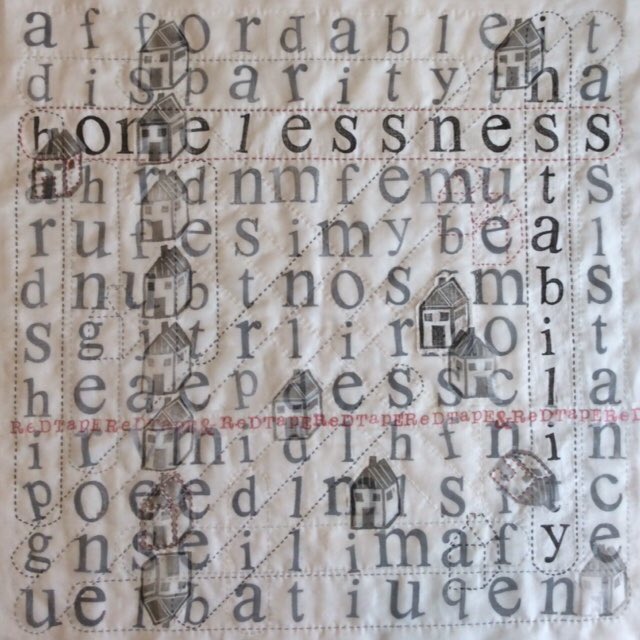 a f f o r d a b l e i t
d i s p a r i t y t n a
h o m e l e s s n e s s
a h r d n m f e m u t s
r u f e s i m y b e a l
d n u b t n o s m b s
s g i t r l i r o i t
h e a e p e s s c l a
ReDTaPEReDTaPE&ReDTaPEReDTaPE&ReDTaPEReD
i r m i d l h f n i n
p o e e d l n s t c
g n s e i l i m a f y e
u e l b a t i u q e n